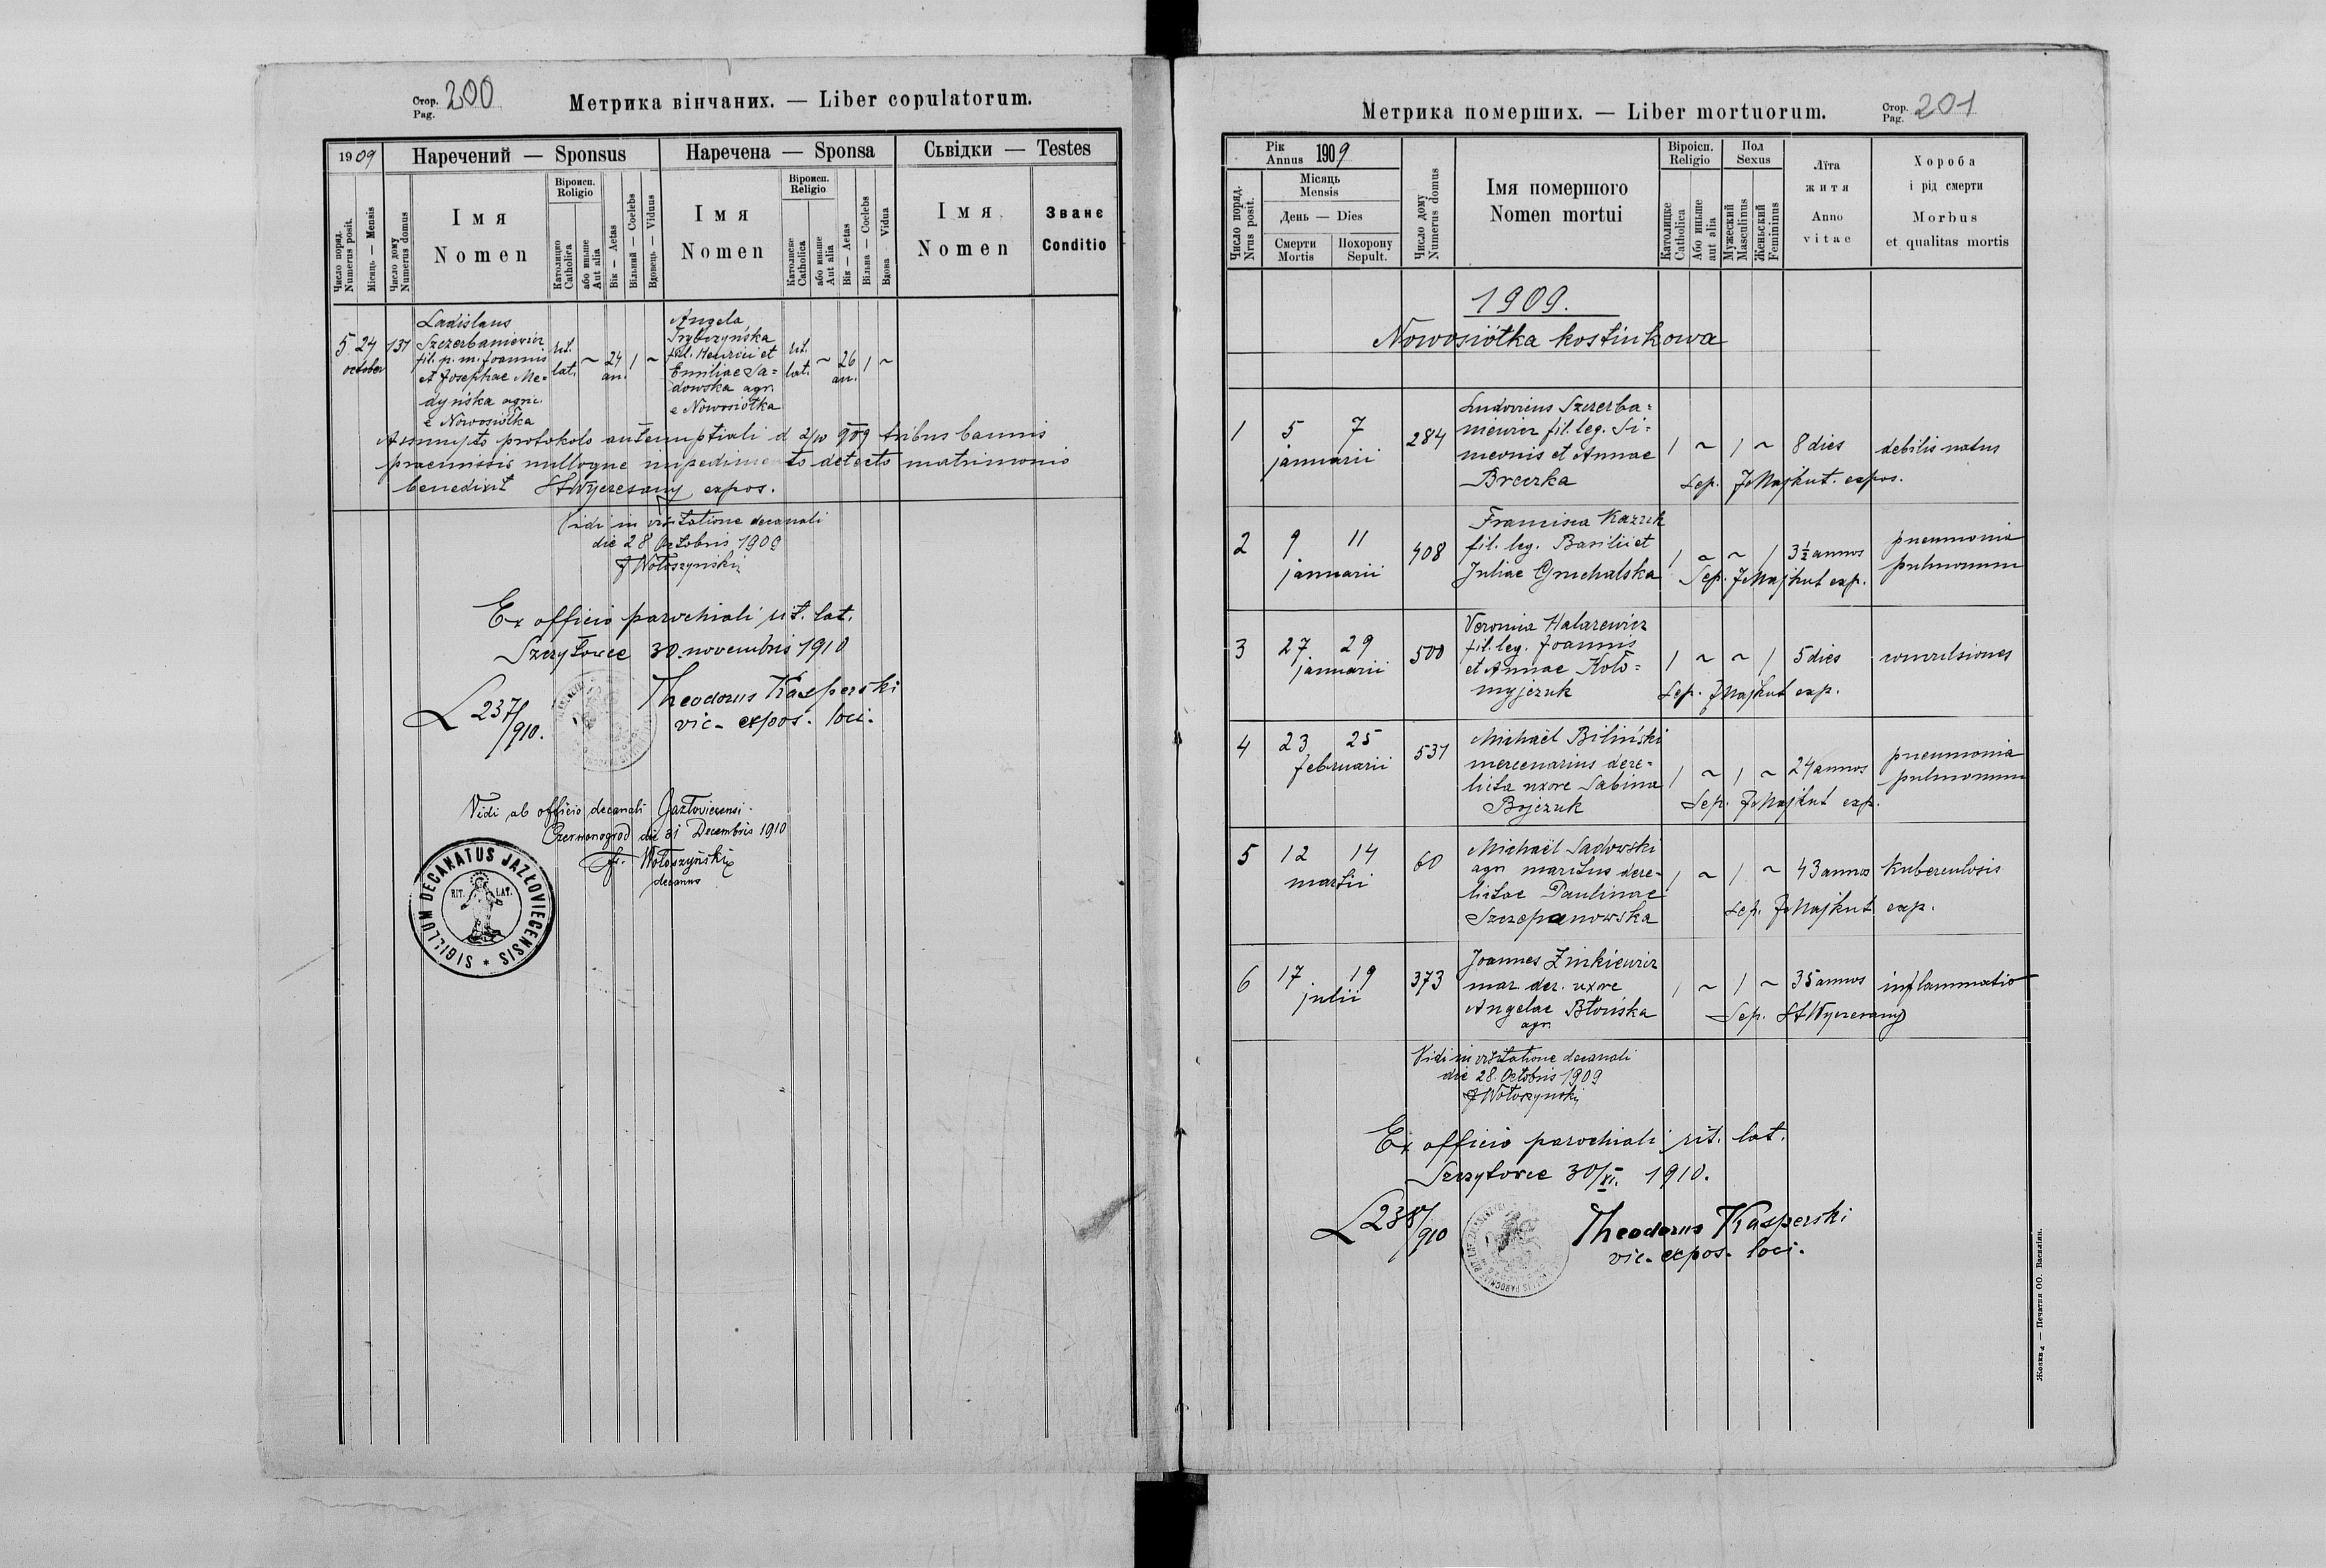 Стор.
Pag. 200
Метрика вінчаних. — Liber copulatorum.
1909
Наречений — Sponsus
Наречена — Sponsa
Сьвідки — Testes
Число поряд.
Numerus posit.
Місяць — Mensis
Число дому
Numerus domus
Імя
Nomen
Віроисп.
Religio
Католицко
Catholica
або иньше
Aut alia
Вік — Aetas
Вільний — Coelebs
Вдовець — Viduus
Імя
Nomen
Віроисп.
Religio
Католиске
Catholica
або иньше
Aut alia
Вік — Aetas
Вільна — Coelebs
Вдова Vidua
Імя
Nomen
Званє
Conditio
5 24 october 137
Ladislaus
Szczerbaniewicz
fil. p. m. Joannis
et Josephae Me=
dyńska agric.
e Nowosiółka
rit. lat. ~ 24 an. 1 ~
Angela
Trybczyńska
fil. Henrici et
Emiliae Sa=
dowska agr.
e Nowosiółka
rit. lat. ~ 26 an. 1 ~
Assumpto protokolo antenuptiali d 2/10 909 tribus bannis
praemissis nulloque impedimento detecto matrimonio
benedixit expos.
Vidi in visitatione decanali
die 28 Octobris 1909
F Wołoszyński
Ex officio parochiali rit. lat.
Szczytowce 30. novembris 1910
L 237/910.
Theodorus Kasperski
vic- expos. loci.
Vidi ab officio decanali Jazłoviecensi
Czerwonogrod die 31 Decembris 1910
Fr. Wołoszyński
decanus
SIGILLUM DECANATUS JAZŁOVIECENSIS *
RIT. LAT.
Метрика померших. — Liber mortuorum.
Стор.
Pag. 201
Число поряд.
Nrus posit.
Рік
Annus 1909
Місяць
Mensis
День — Dies
Смерти
Mortis
Похорону
Sepult.
Число дому
Numerus domus
Імя помершого
Nomen mortui
Віроісп.
Religio
Католицке
Catholica
Або иньше
aut alia
Пол
Sexus
Мужеский
Masculinus
Женьский
Femininus
Лїта
житя
Anno
vitae
Хороба
і рід смерти
Morbus
et qualitas mortis
1909.
Nowosiółka kostiukowa
1 5 7 januarii 284
Ludovicus Szczerba=
niewicz fil. leg. Si=
meonis et Annae
Breczka
1 ~ 1 ~ 8 dies debilis natus
Sep. J Majkut. expos.
2 9 11 januarii 408
Francisca Kazuk
fil. leg. Basilii et
Juliae Gruchalska
1 ~ ~ 1 3½ annos pneumonia
pulmonum
Sep. J Majkut exp.
3 27 29 januarii 500
Veronica Halarewicz
fil. leg. Joannis
et Annae Koło=
myjczuk
1 ~ ~ 1 5 dies convulsiones
Sep. J Majkut exp.
4 23 25 februarii 537
Michaël Biliński
mercenarius dere=
licta uxore Sabina
Bojczuk
1 ~ 1 ~ 24 annos pneumonia
pulmonum
Sep. J Majkut exp.
5 12 14 martii 60
Michaël Sadowski
agr. maritus dere-
lictae Paulinae
Szczepanowska
1 ~ 1 ~ 43 annos tuberculosis
Sep. J Majkut exp.
6 17 19 julii 373
Joannes Zinkiewicz
mar. der. uxore
Angelae Błońska
agr.
1 ~ 1 ~ 35 annos inflammatio
Sep.
Vidi in visitatione decanali
die 28. Octobris 1909
F Wołoszyński
Ex officio parochiali rit. lat.
Szczytowce 30/XI. 1910.
L 238/910
Theodorus Kasperski
vic- expos- loci.
Жовква — Печатня ОО. Василіян.